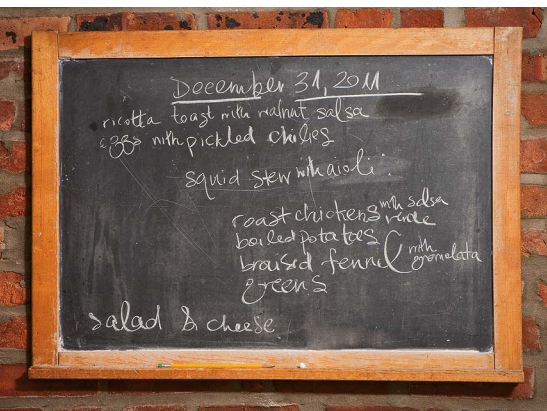 December 31, 2011
ricotta toast with walnut salsa
eggs with pickled chilies
squid stew with aioli
roast chickens with salsa verde
boiled potatoes
braised fennel with gremolata
greens
salad & cheese